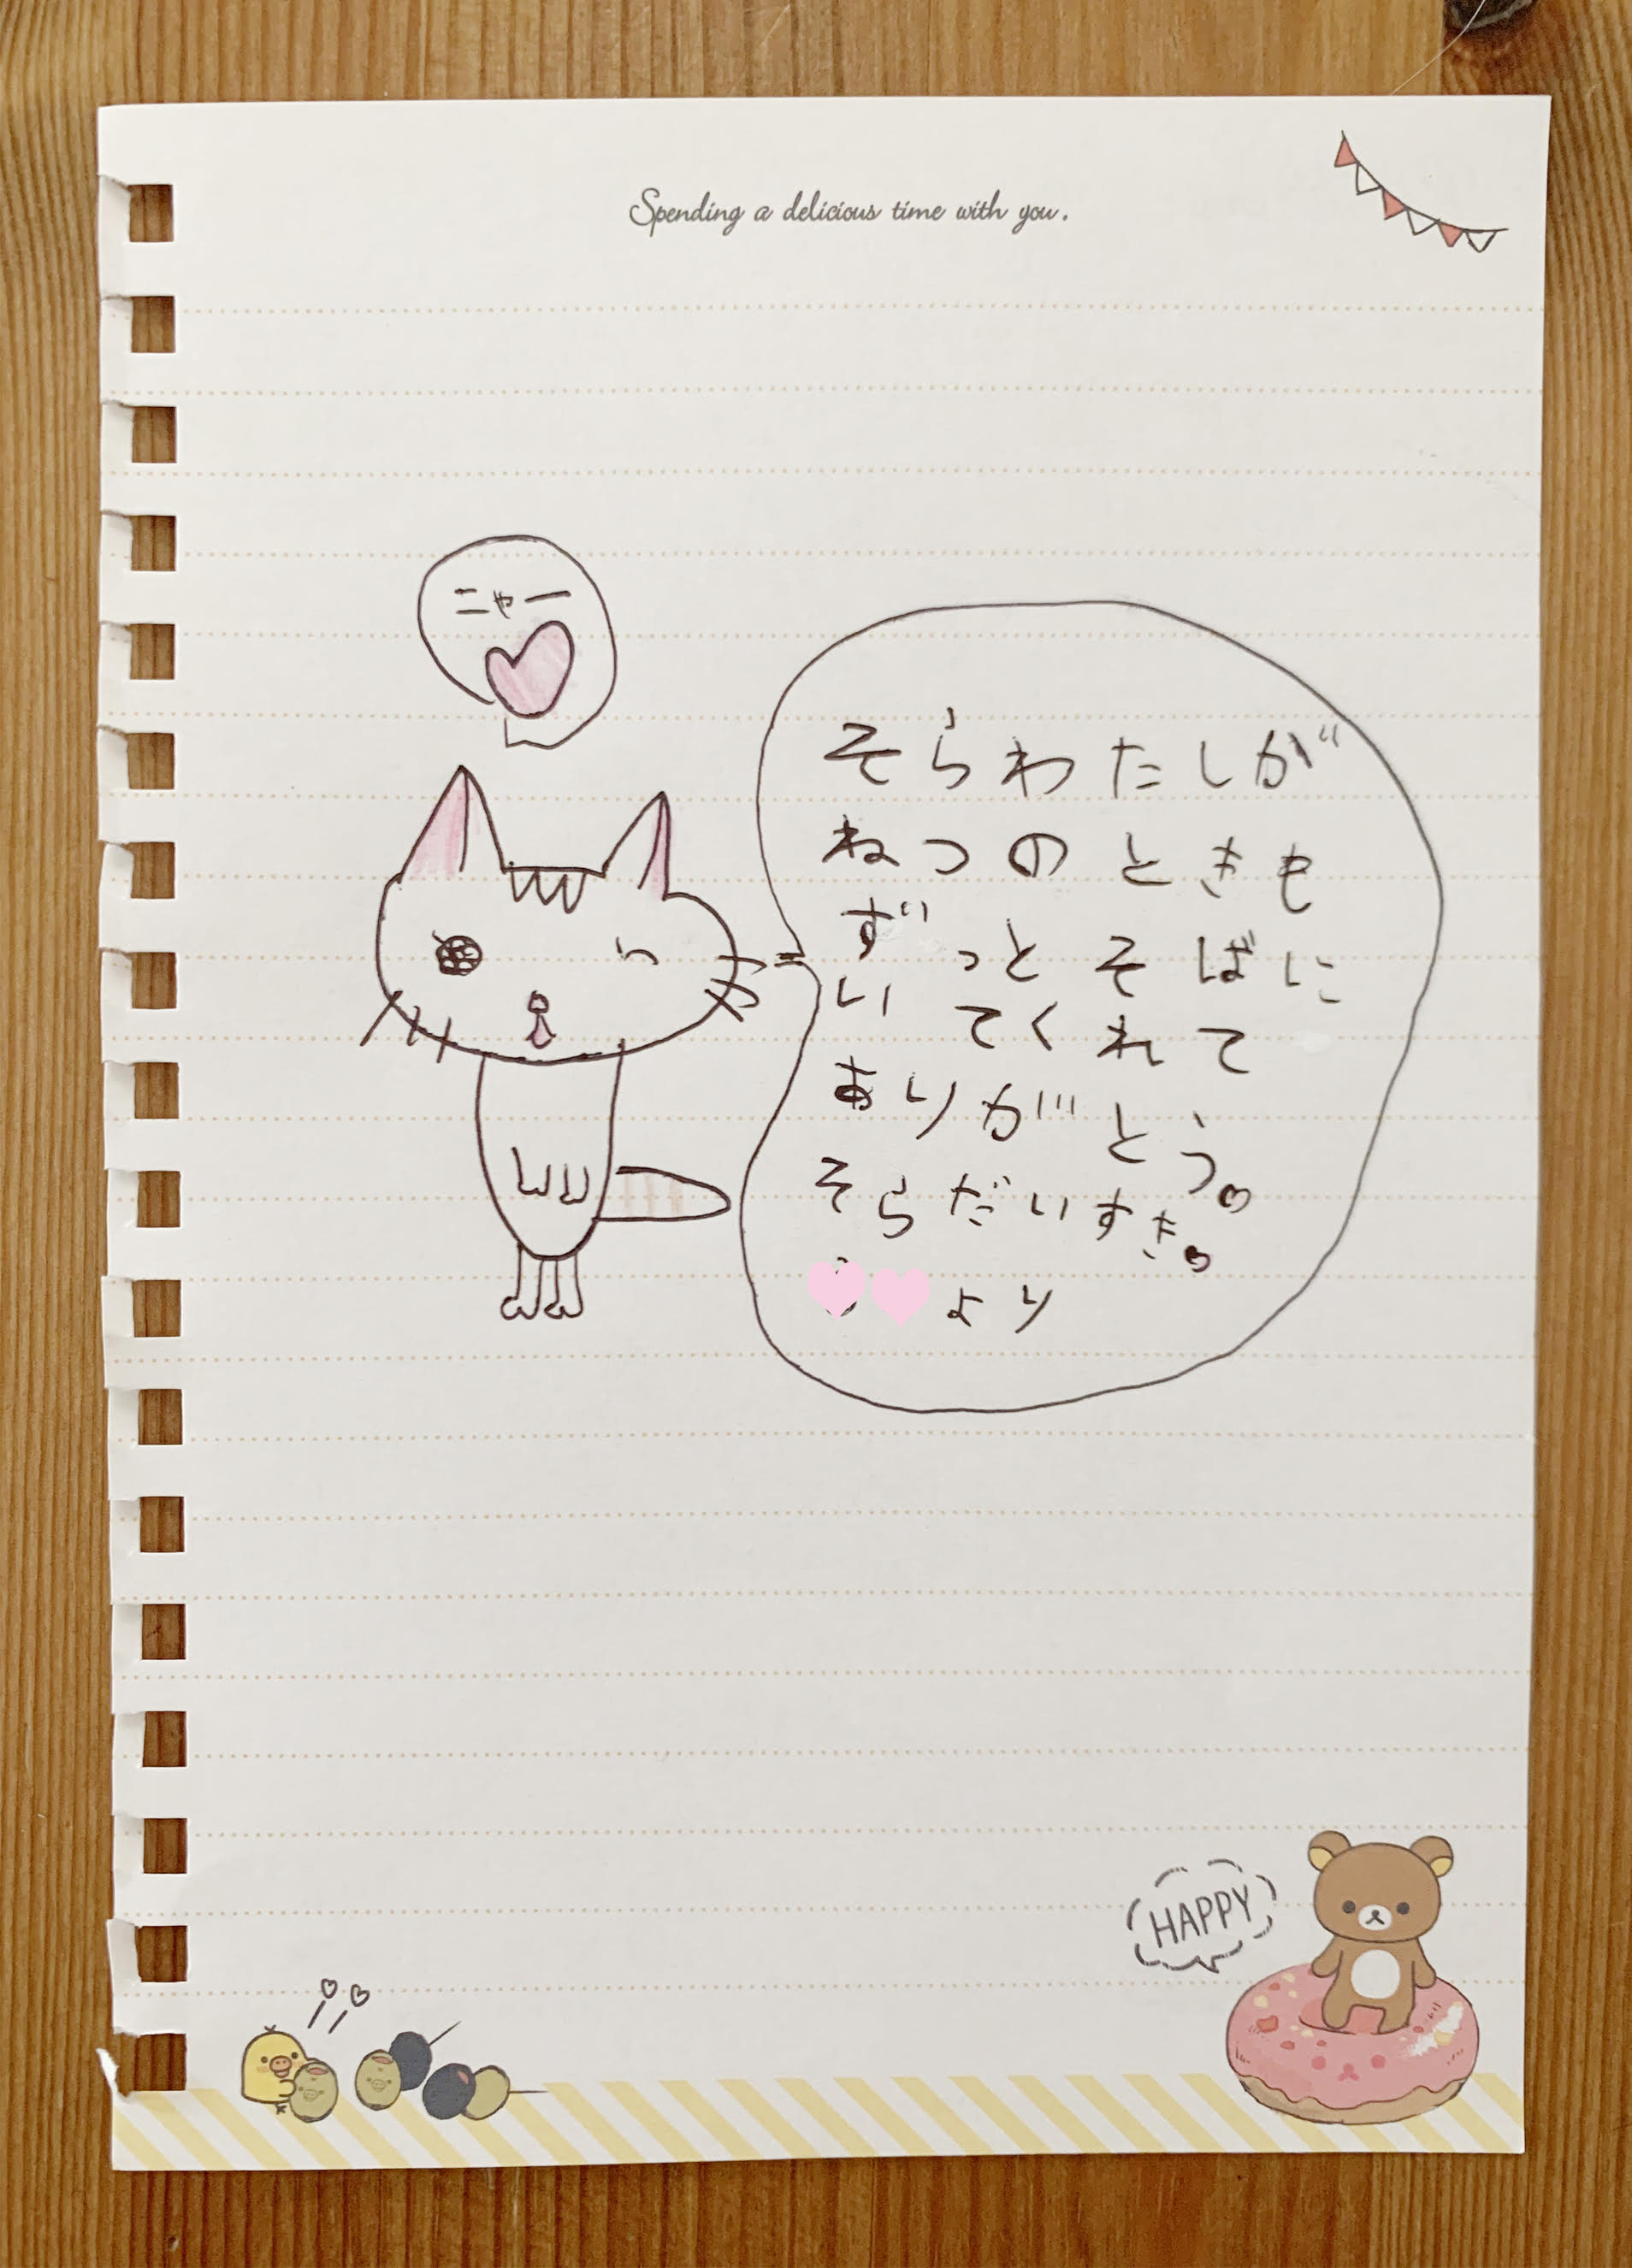 Spending a delicious time with you.
ニャー
そらわたしが
ねつのときも
ずっとそばに
いてくれて
ありがとう。
そらだいすき。
より
HAPPY